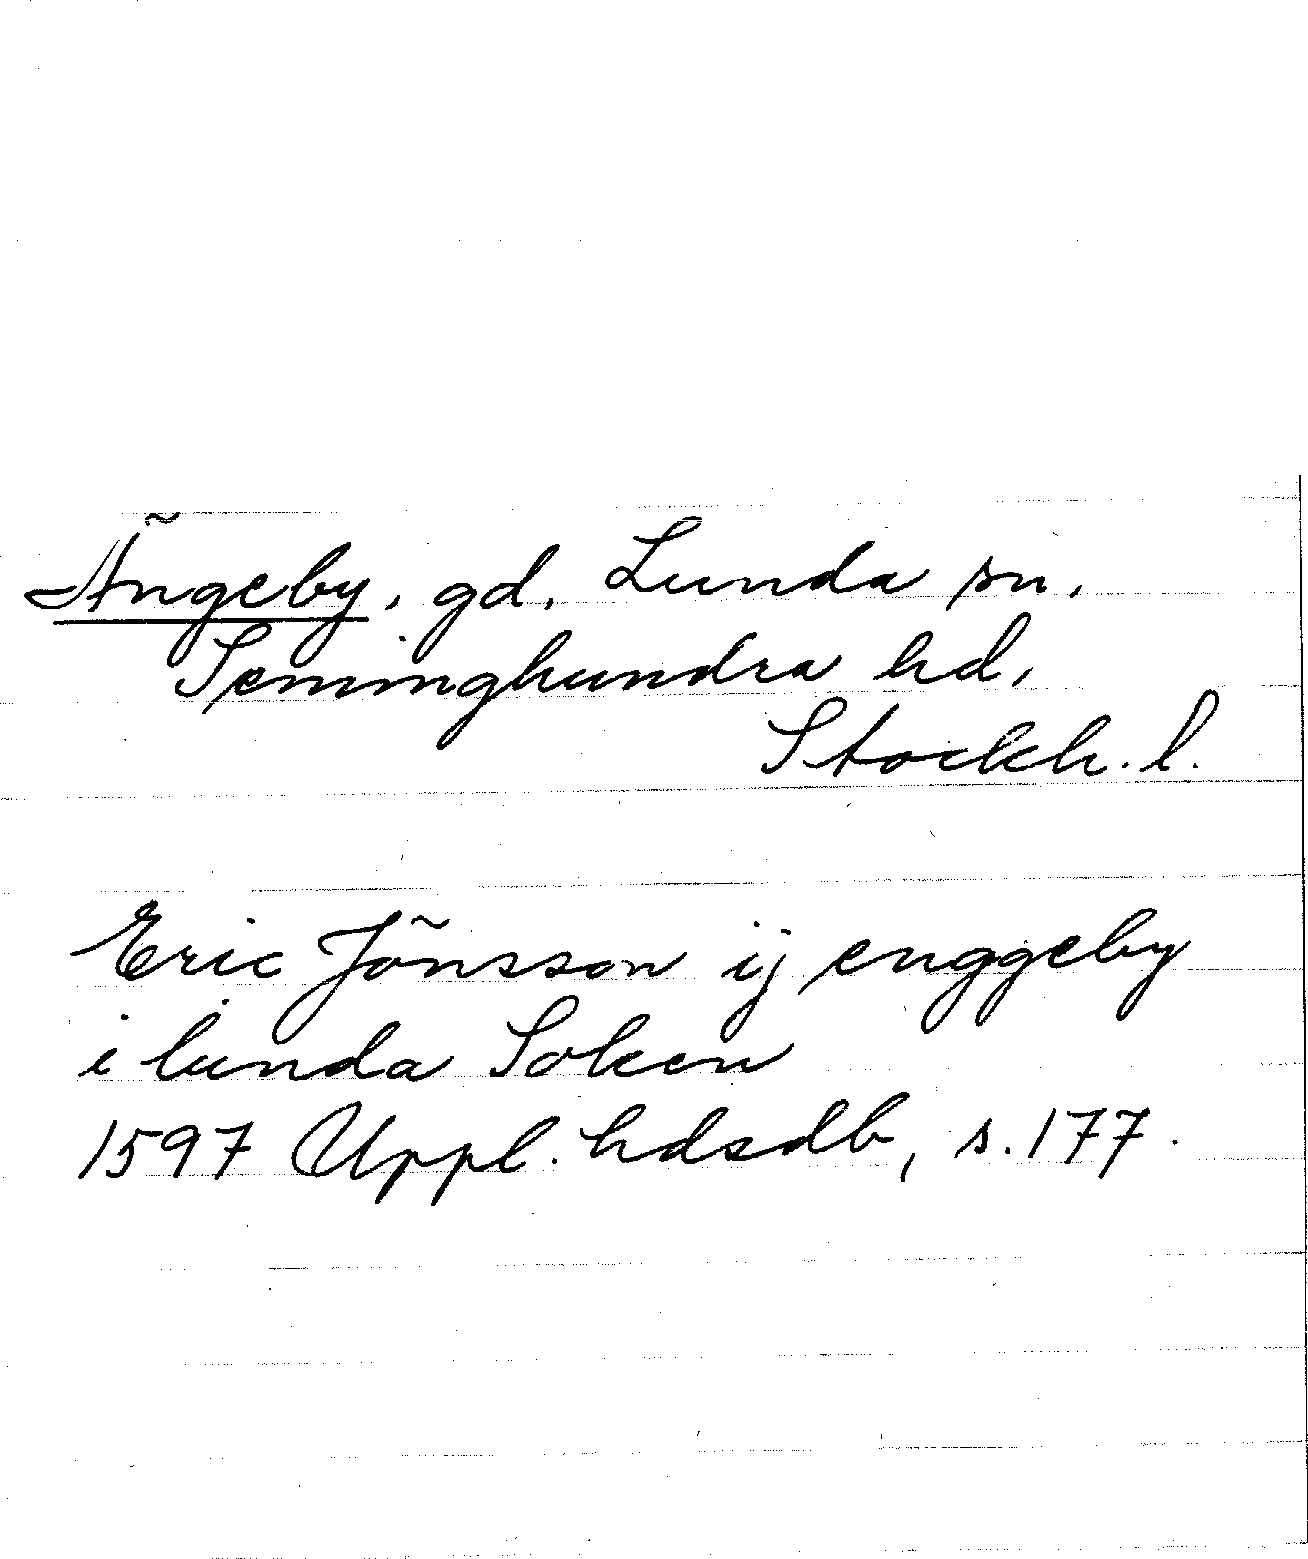 Ängeby, gd, Lunda sn,
Seminghundra hd,
Stockh. l.
Eric Jönsson ij enggeby
i lunda Soken
1597 Uppl. hdsdb, s. 177.